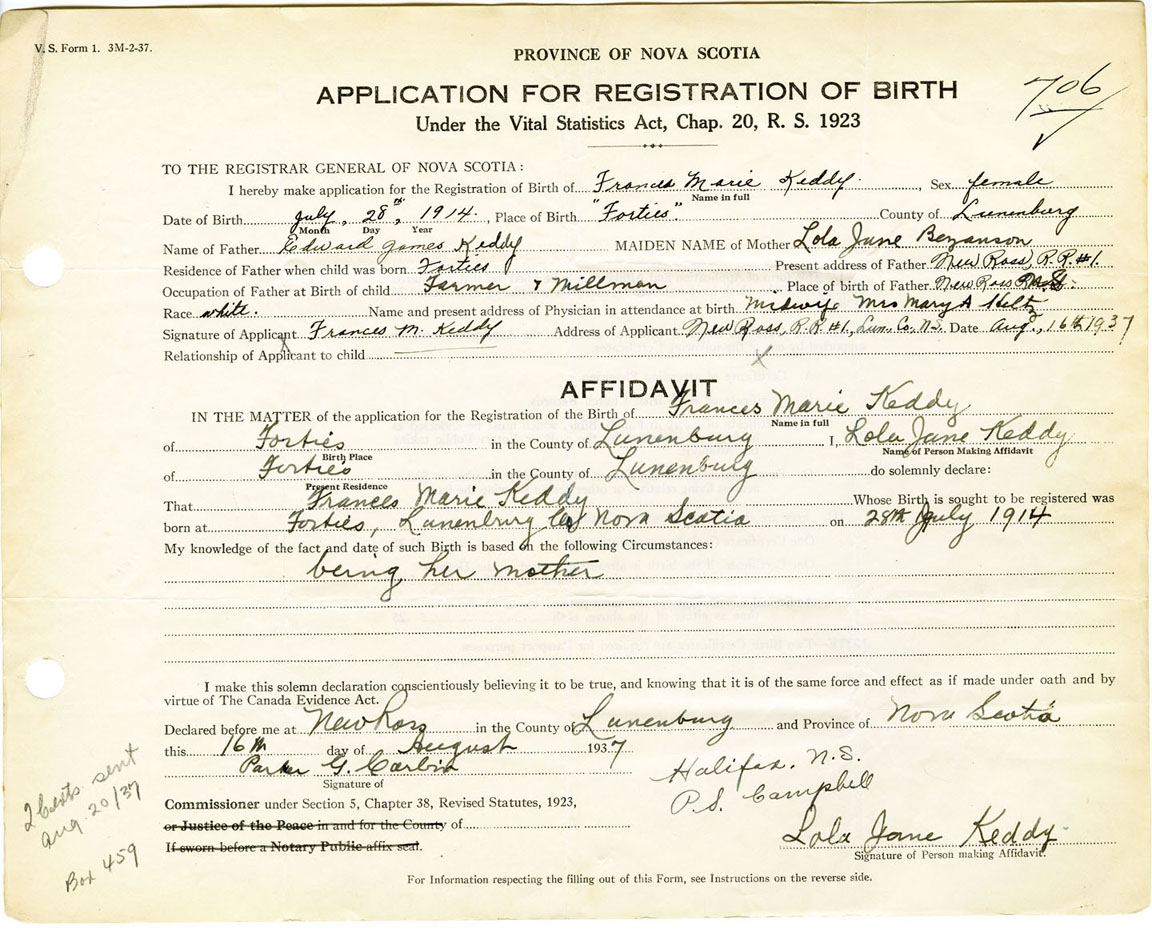 V. S. Form 1. 3M-2-37.
PROVINCE OF NOVA SCOTIA
706
APPLICATION FOR REGISTRATION OF BIRTH
Under the Vital Statistics Act, Chap. 20, R. S. 1923
TO THE REGISTRAR GENERAL OF NOVA SCOTIA:
I hereby make application for the Registration of Birth of Frances Marie Keddy. , Sex female
Name in full
Date of Birth July, 28th, 1914. , Place of Birth "Forties". County of Lunenburg
Month Day Year
Name of Father Edward James Keddy MAIDEN NAME of Mother Lola Jane Bezanson
Residence of Father when child was born Forties Present address of Father New Ross, R.R.#1.
Occupation of Father at Birth of child Farmer & Millman Place of birth of Father New Ross
Race white. Name and present address of Physician in attendance at birth Midwife Mrs Mary A Keltz
Signature of Applicant Frances M. Keddy Address of Applicant New Ross, R.R.#1, Lun. Co. N.S. Date Aug., 16th 1937
Relationship of Applicant to child X
AFFIDAVIT
IN THE MATTER of the application for the Registration of the Birth of Frances Marie Keddy
Name in full
of Forties in the County of Lunenburg I, Lola Jane Keddy
Birth Place Name of Person Making Affidavit
of Forties in the County of Lunenburg do solemnly declare:
Present Residence
That Frances Marie Keddy Whose Birth is sought to be registered was
born at Forties, Lunenburg Co Nova Scotia on 28th July 1914
My knowledge of the fact and date of such Birth is based on the following Circumstances:
being her mother
I make this solemn declaration conscientiously believing it to be true, and knowing that it is of the same force and effect as if made under oath and by
virtue of The Canada Evidence Act.
Declared before me at New Ross in the County of Lunenburg and Province of Nova Scotia
this 16th day of August 1937
Parker G. Corbin
Signature of
Halifax, N.S.
P.S. Campbell
Commissioner under Section 5, Chapter 38, Revised Statutes, 1923,
or Justice of the Peace in and for the County of
If sworn before a Notary Public affix seal.
Lola Jane Keddy
Signature of Person making Affidavit.
2 Certs sent
Aug. 20/37
Box 459
For Information respecting the filling out of this Form, see Instructions on the reverse side.